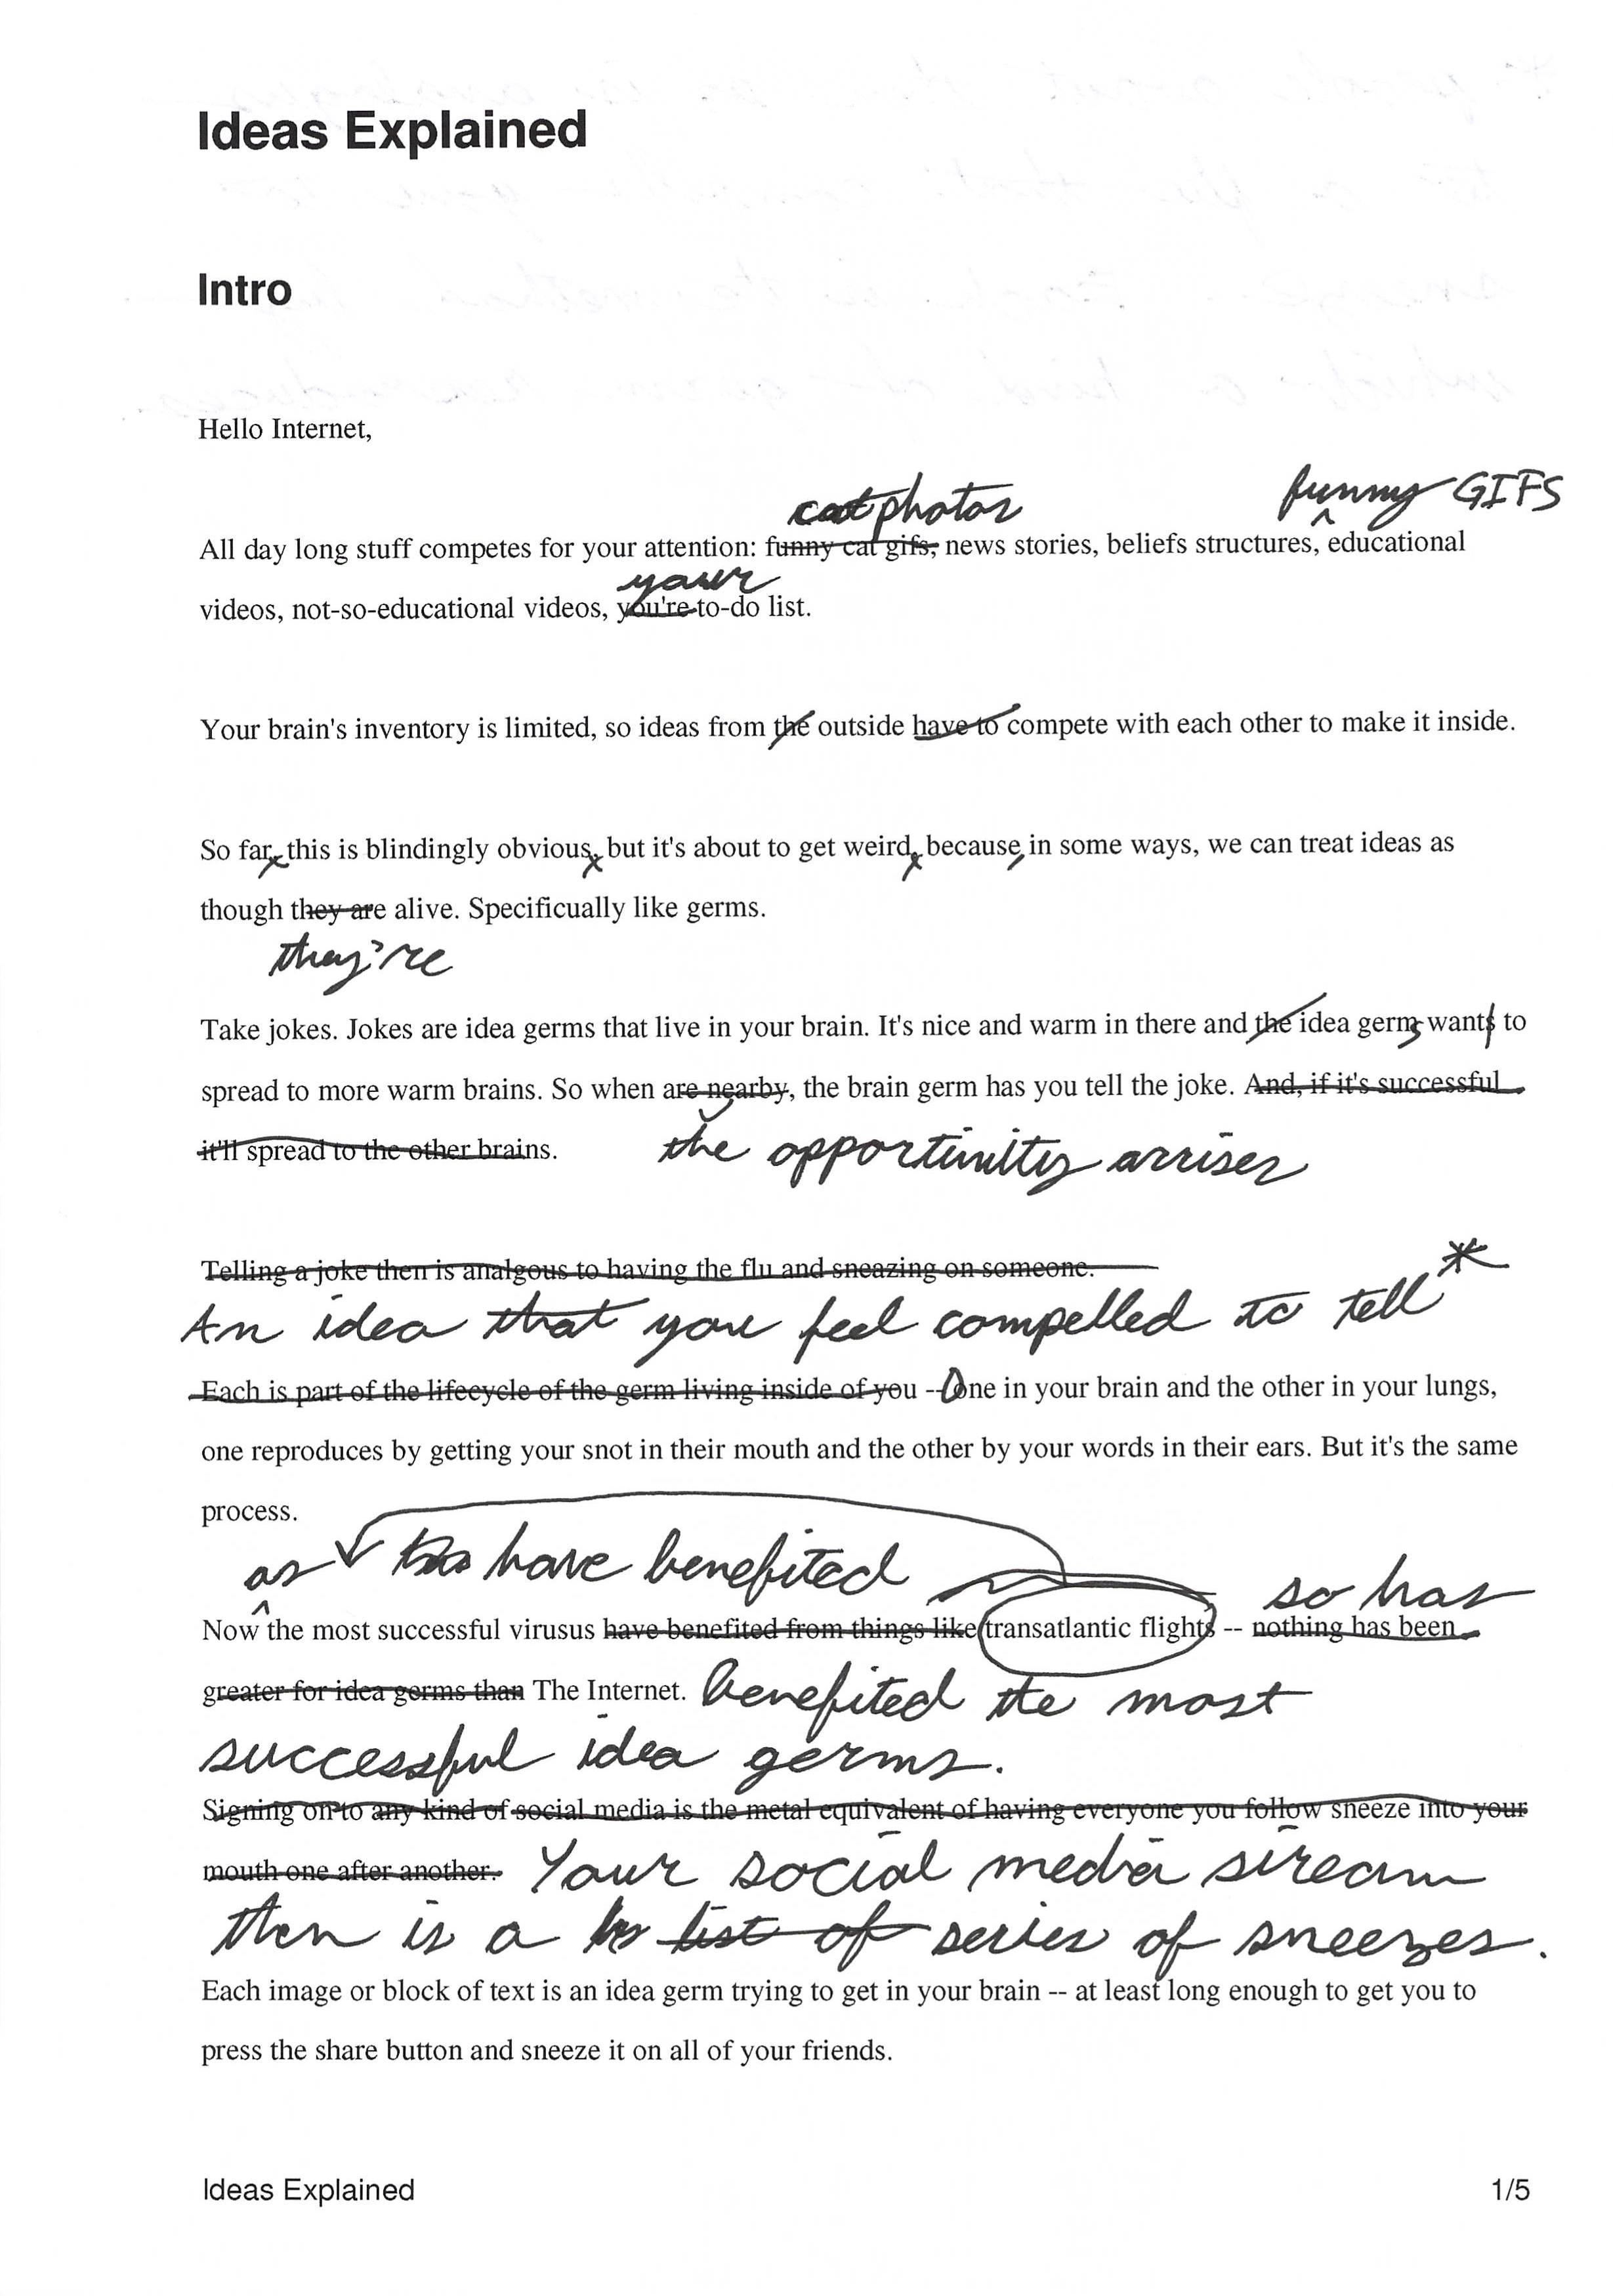 Ideas Explained
Intro
Hello Internet,
cat photos funny GIFS
All day long stuff competes for your attention: funny cat gifs, news stories, beliefs structures, educational
your
videos, not-so-educational videos, you're to-do list.
Your brain's inventory is limited, so ideas from the outside have to compete with each other to make it inside.
So far, this is blindingly obvious, but it's about to get weird, because, in some ways, we can treat ideas as
though they are alive. Specificually like germs.
they're
Take jokes. Jokes are idea germs that live in your brain. It's nice and warm in there and the idea germs wants to
spread to more warm brains. So when are nearby, the brain germ has you tell the joke. And, if it's successful
it'll spread to the other brains. the opportunity arrises
Telling a joke then is analgous to having the flu and sneazing on someone.
An idea that you feel compelled to tell *
Each is part of the lifecycle of the germ living inside of you -- One in your brain and the other in your lungs,
one reproduces by getting your snot in their mouth and the other by your words in their ears. But it's the same
process.
as have benefited so has
Now ^ the most successful virusus have benefited from things like transatlantic flights -- nothing has been
greater for idea germs than The Internet. benefited the most
successful idea germs.
Signing on to any kind of social media is the metal equivalent of having everyone you follow sneeze into your
mouth one after another. Your social media stream
then is a list of series of sneezes.
Each image or block of text is an idea germ trying to get in your brain -- at least long enough to get you to
press the share button and sneeze it on all of your friends.
Ideas Explained 1/5